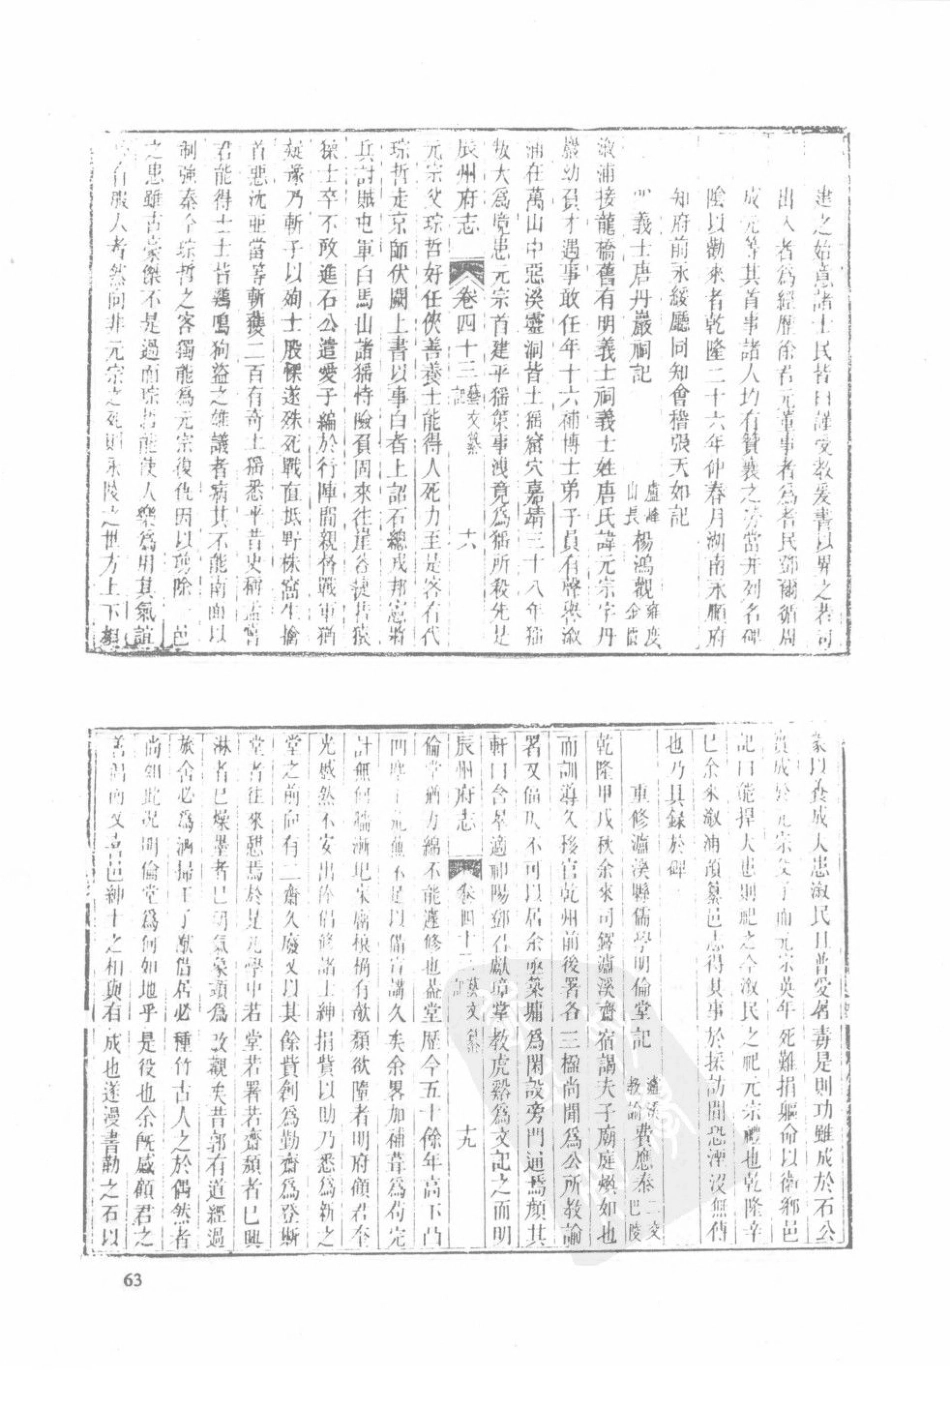 建之始意諸士民皆曰謹受教爰書以畀之若司
出入者為經歷徐君元董事者為耆民鄧爾循周
成元等其首事諸人均有贊襄之勞當并列名碑
陰以勸來者乾隆二十六年仲春月湖南永順府
知府前永綏廳同知會稽張天如記
義士唐丹巖祠記 盧峰山長楊鴻觀
漵浦接龍橋舊有明義士祠義士姓唐氏諱元宗字丹
巖幼負才遇事敢任年十六補博士弟子員有聲譽漵
浦在萬山中惡溪靈洞皆土猺窟穴嘉靖三十八年猺
叛大為境患元宗首建平猺策事洩竟為猺所殺先是
辰州府志 卷四十三 藝文纂 記 十八
元宗父琮哲好任俠善養士能得人死力至是客有代
琮哲走京師伏闕上書以事白者上詔石總戎邦憲將
兵討賊屯軍白馬山諸猺恃險負固來往崖谷捷若猿
猱士卒不敢進石公遣愛子編於行陣間親督戰軍猶
疑豫乃斬子以殉士股慄遂殊死戰直抵野株窩生擒
首惡沈亜當等斬獲二百有奇土猺悉平昔史稱孟嘗
君能得士士皆雞鳴狗盜之雄議者病其不能南面以
制強秦今琮哲之客獨能為元宗復仇因以剪除一邑
之患雖古豪傑不是過而琮哲能使人樂為用其氣誼
有服人者然向非元宗之死則永陵之世方上下相
蒙以養成大患漵民且曾受屠毒是則功雖成於石公
實成於元宗父子而元宗英年死難捐軀命以衛鄉邑
記曰能捍大患則祀之今漵民之祀元宗禮也乾隆辛
巳余來漵浦預纂邑志得其事於採訪間恐湮沒無傳
也乃具錄於碑
重修瀘溪縣儒學明倫堂記 瀘溪教諭費應泰 巴陵
乾隆甲戌秋余來司鐸瀘溪齋宿謁夫子廟庭煥如也
而訓導久移官乾州前後署各三楹尚聞為公所教諭
署又偪仄不可以居余亟築墉為閑設旁門通焉顏其
軒曰含翠適祁陽鄧君獻璋掌教虎谿為文記之而明
辰州府志 卷四十三 藝文纂 記 十九
倫堂猶力綿不能遽修也蓋堂歷今五十餘年高下凸
凹 不足以備宣講久矣余畧加補葺為苟完
計無何牆漸圮朱腐根桷有欹頹欲墮者明府顧君奎
光慼然不安出俸倡修諸士紳捐貲以助乃悉為新之
堂之前向有二齋久廢又以其餘貲創為勤齋為登斯
堂者往來憩焉於是 學中若堂若署若齋頹者已興
淋者已燥墨者已 氣象頭為改觀矣昔郭有道經過
旅舍必為洒掃王子猷借居必種竹古人之於偶然者
尚如此况明倫堂為何如地乎是役也余既感顧君之
善 而又喜邑紳士之相與有成也遂漫書勒之石以
63